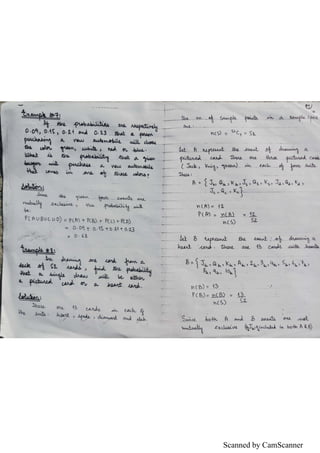 Example #7:
If the probabilities are respectively
0.09, 0.15, 0.21 and 0.23 that a person
purchasing a new automobile will choose
the color green, white, red or blue.
What is the probability that a given
buyer will purchase a new automobile
that comes in one of those colors?
Solution:
Since the given four events are
mutually exclusive, the probability will
be
P(AUBUCUD) = P(A) + P(B) + P(C) + P(D)
= 0.09 + 0.15 + 0.21 + 0.23
= 0.68
Example #8:
In drawing one card from a
deck of 52 cards, find the probability
that a single draw will be either
a pictured card or a heart card.
Solution:
There are 13 cards in each of
the suits heart, spade, diamond and club
the no. of sample points in a sample space
are
n(S) = ⁵²C₁ = 52
Let A represent the event of drawing a
pictured card there are three pictured cards
(Jack, King, queen) in each of four suits
then:
n(A) = 12
P(A) = n(A) = 12
n(S) 52
Let B represent the event of drawing a
heart card there are 13 cards with hearts
n(B) = 13
P(B) = n(B) = 13
n(S) 52
Since both A and B events are not
mutually exclusive
Scanned by CamScanner